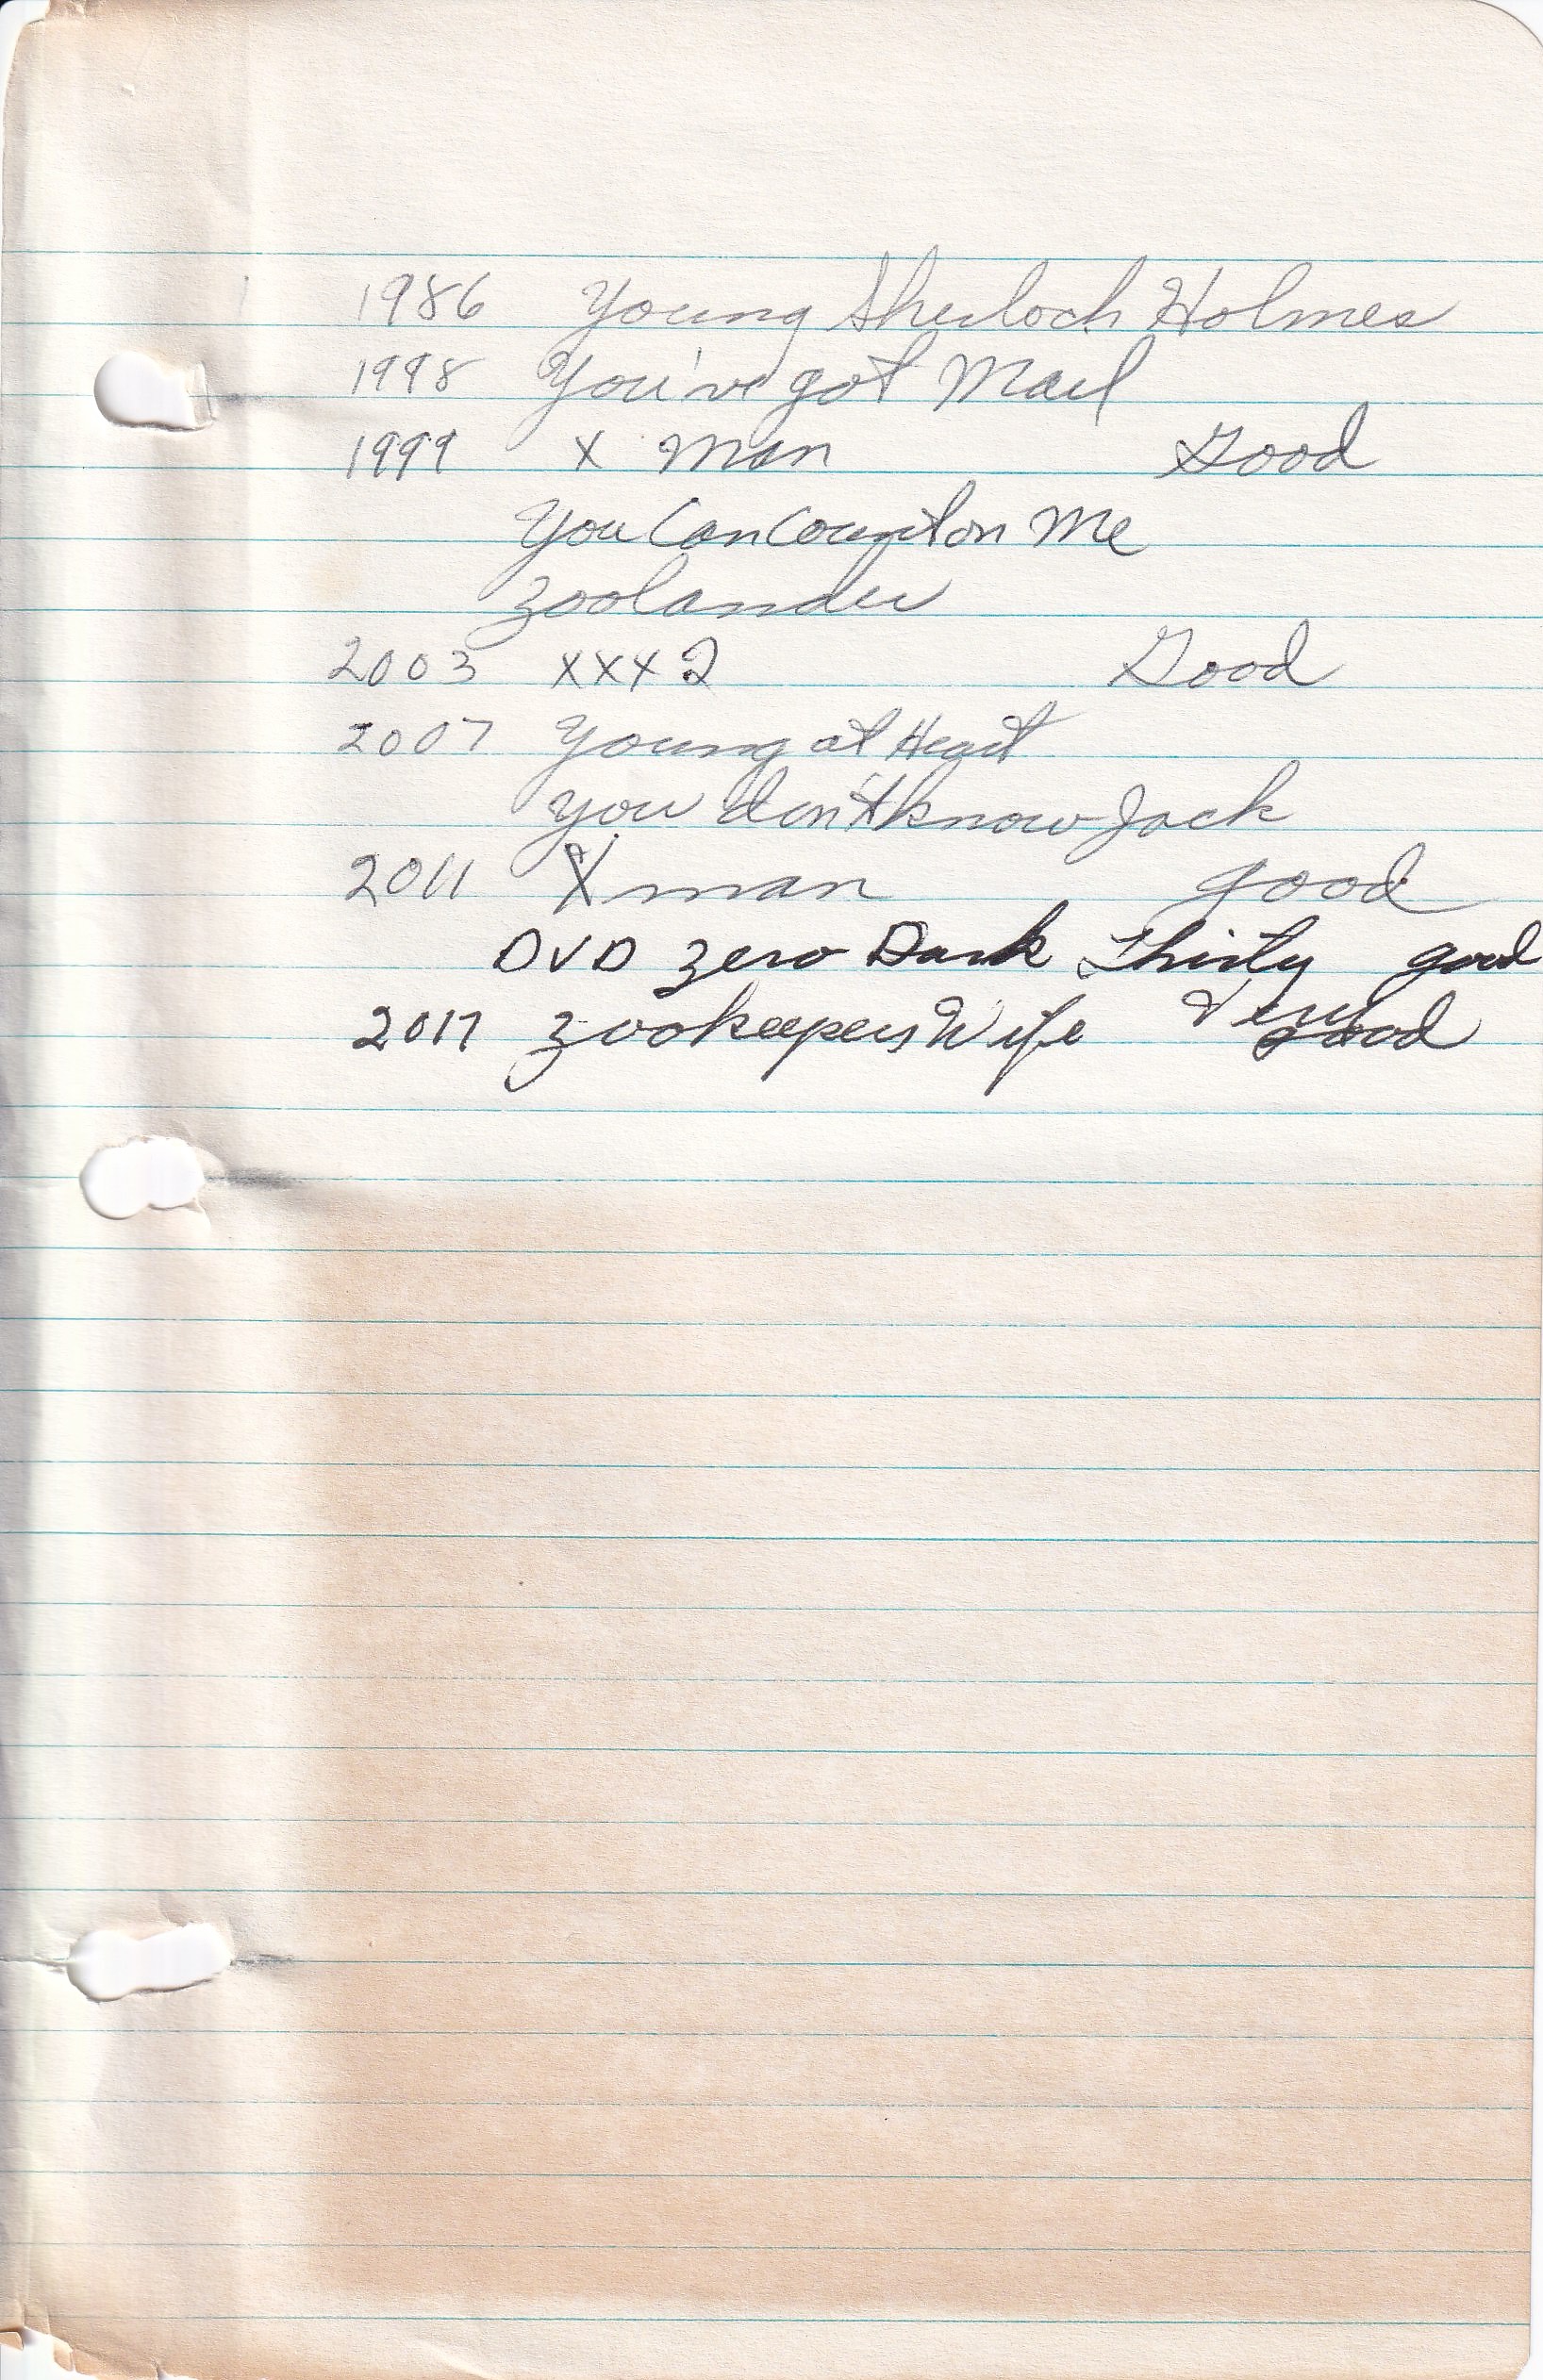 1986 Young Sherloch Holmes
1998 You've got Mail
1999 X Man Good
You Can Count on Me
Zoolander
2003 XXX 2 Good
2007 Young at Heart
You don't know Jack
2011 X man good
DVD Zero Dark Thirty good
2017 Zookeepers Wife Very good